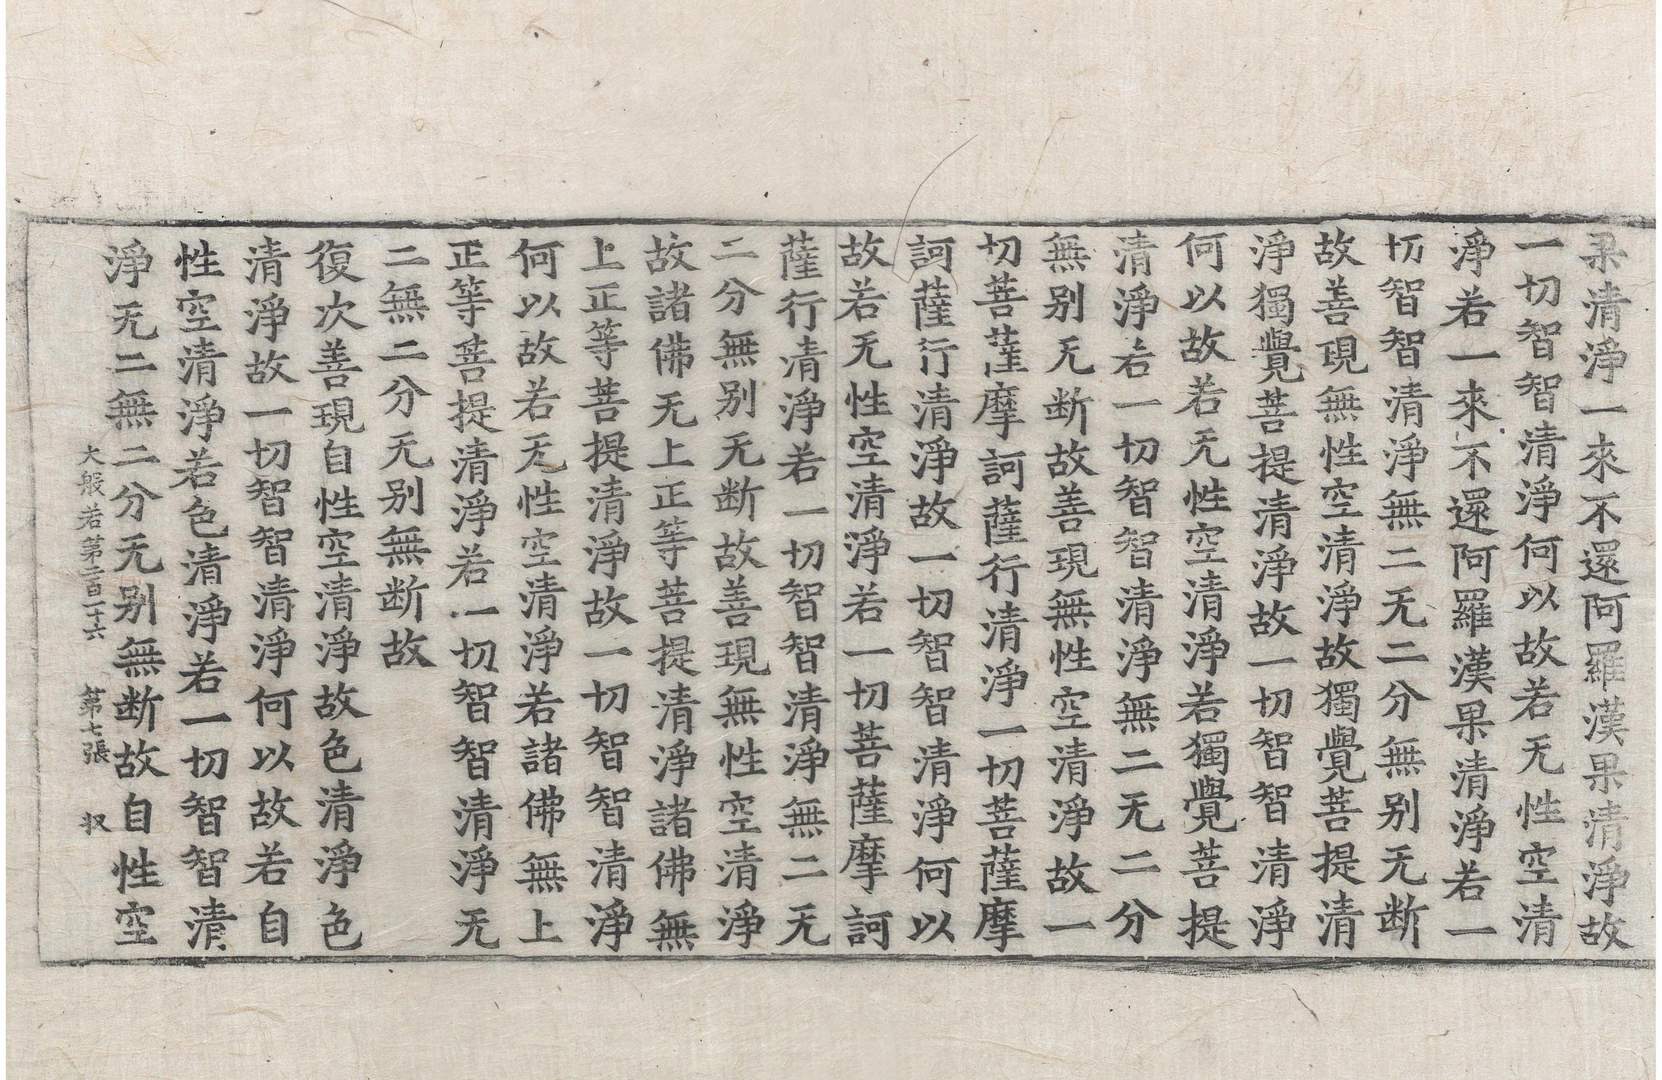 果清淨一來不還阿羅漢果清淨故
一切智智清淨何以故若无性空清
淨若一來不還阿羅漢果清淨若一
切智智清淨無二无二分無別无断
故善現無性空清淨故獨覺菩提清
淨獨覺菩提清淨故一切智智清淨
何以故若无性空清淨若獨覺菩提
清淨若一切智智清淨無二无二分
無别无断故善現無性空清淨故一
切菩薩摩訶薩行清淨一切菩薩摩
訶薩行清淨故一切智智清淨何以
故若无性空清淨若一切菩薩摩訶
薩行清淨若一切智智清淨無二无
二分無别无断故善現無性空清淨
故諸佛无上正等菩提清淨諸佛無
上正等菩提清淨故一切智智清淨
何以故若无性空清淨若諸佛無上
正等菩提清淨若一切智智清淨无
二無二分无别無断故
復次善現自性空清淨故色清淨色
清淨故一切智智清淨何以故若自
性空清淨若色清淨若一切智智清
淨无二無二分无别無断故自性空
大般若第二百二十六 第七張